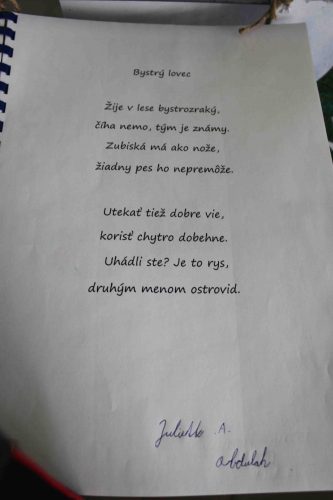 Bystrý lovec
Žije v lese bystrozraký,
číha nemo, tým je známy.
Zubiská má ako nože,
žiadny pes ho nepremôže.
Utekať tiež dobre vie,
korisť chytro dobehne.
Uhádli ste? Je to rys,
druhým menom ostrovid.
A.
Abdulah